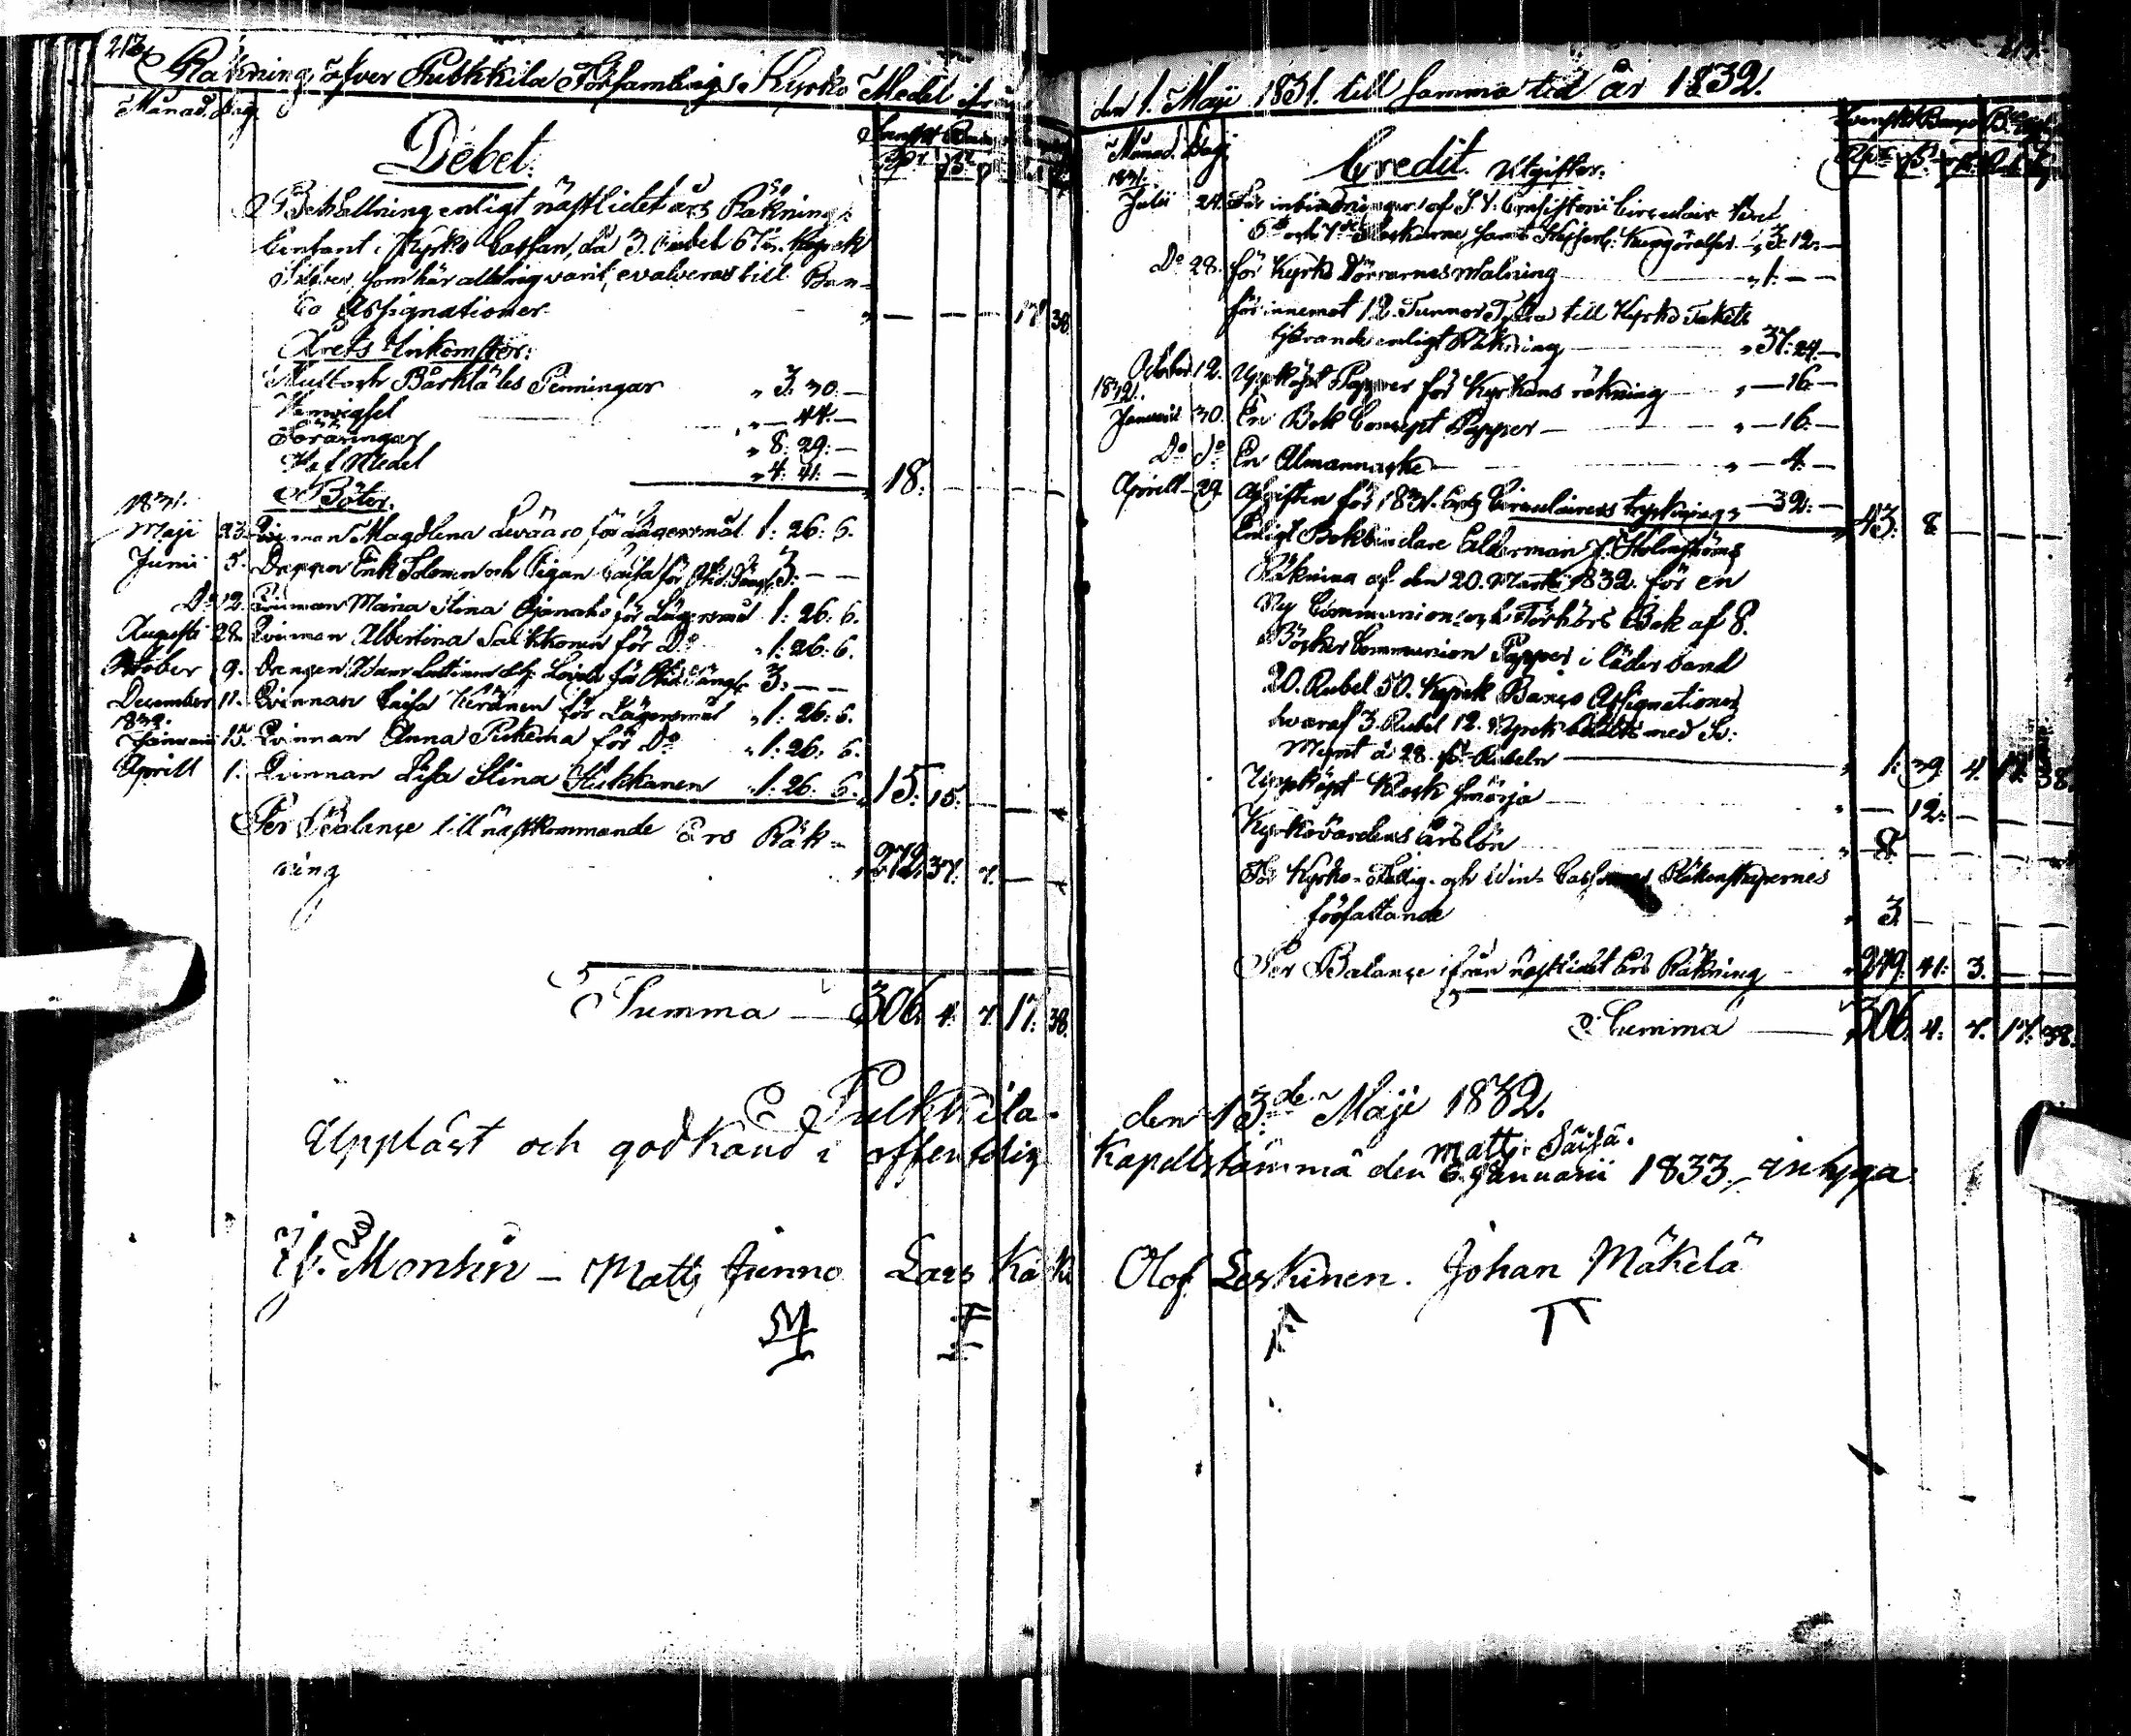 213.
Räkning öfver Pulkkila Församlings Kyrko Medel ifrån
Månad. Dag.
Debet.
Behållning enligt nästlidet års Räkning:
Contant i Kyrko Cassan, då 3. Rubel 67 Kopek
Silfver, som här aldrig varit, evalveras till Ban-
co Assignationer „ — — — 17 38
Årets Inkomster:
Mull och Bårklädes Penningar „ 3. 30. —
Kamvigsel „ — 44. —
Föräringar „ 8. 29. —
Haf Medel „ 4. 41. — 18. — — — —
Böter.
1831.
Maji 23. Qvinnan Magdlena för Lägersmål 1: 26: 6.
Junii 5. Drengen Erik Solomon och Pigan Caisa för Otid. Sängl. 3. — —
Do 12. Qvinnan Maria Stina Ojanaho för Lägersmål 1: 26: 6.
Augusti 28. Qvinnan Albertina Saikkonen för Do „ 1: 26: 6.
October 9. Drengen för Otid. Sängl. 3. — —
December 11. Qvinnan Caisa Keränen för Lägersmål „ 1: 26: 6.
1832.
Januarii 15. Qvinnan Anna för Do „ 1: 26: 6.
Aprill 1. Qvinnan Lisa Stina Hukkanen „ 1: 26: 6. 15: 15: — — —
Per Balançe till nästkommande års Räk-
ning „ 272. 37. 7. — —
Summa — 306. 4. 7. 17. 38.
Pulkkila
Uppläst och godkänd i offentelig
Matts Junno Lars
den 1. Maji 1831. till samma tid år 1832.
Svenskt Banço
Månad. Dag.
Credit. Utgifter.
1831.
Julii 24. För inbindningar af Consistorii Circulair
6te och 7de samt Kejserl: Kungörelser „ 3: 12: —
Do 28. för Kyrko Dörrarnes målning „ 1: — —
för innemot 12. Tunnor Tjära till Kyrko Takets
tjärande enligt Räkning „ 37: 24. —
October 12. Uppköpt Papper för Kyrkans räkning „ — 16. —
1832.
Januarii 30. En Bok Concept Papper — „ — 16. —
Do do En Almannacka — „ — 4. —
Aprill 29 Afgiften för 1831. års Circulairers tryckning „ — 32: — 43. 8 — — —
Enligt Bokbindare Ålderman J. Holmströms
Räkning af den 20. Martii 1832. för en
Ny Communion och Förhörs Bok af 8.
Böcker Communion Papper i läder band
20. Rubel 50. Kopek Banço Assignationer,
hvaraf 3. Rubel 12. Kopek betalts med Sv:
Mynt à 28. ß. Rubeln „ 1. 39. 4. 17. 38.
Uppköpt Klock smörja „ — 12. — — —
Kyrkovärdens årslön „ 8. — — — —
För Kyrko- Fattig- och Vin- Räkenskapernes
författande „ 3. — — — —
Per Balançe ifrån nästlidit års Räkning „ 249. 41: 3. — —
Summa — 306. 4. 7. 17. 38.
den 13de Maji 1832.
Matts
Kapellstämma den 6. Januarii 1833. intyga
Olof Leskinen. Johan Mäkelä